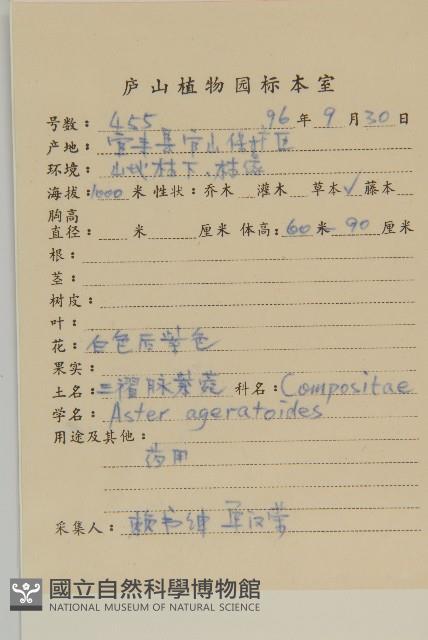 庐山植物园标本室
号数：455 96年9月30日
产地：宜丰县官山保护区
环境：山地林下、林缘
海拔：1000米 性状：乔木 灌木 草本✓藤本
胸高
直径： 米 厘米 体高：60米 90厘米
根：
茎：
树皮：
叶：
花：白色后紫色
果实：
土名：三褶脉紫菀 科名：Compositae
学名：Aster ageratoides
用途及其他：
药用
采集人：赖书绅
國立自然科學博物館
NATIONAL MUSEUM OF NATURAL SCIENCE